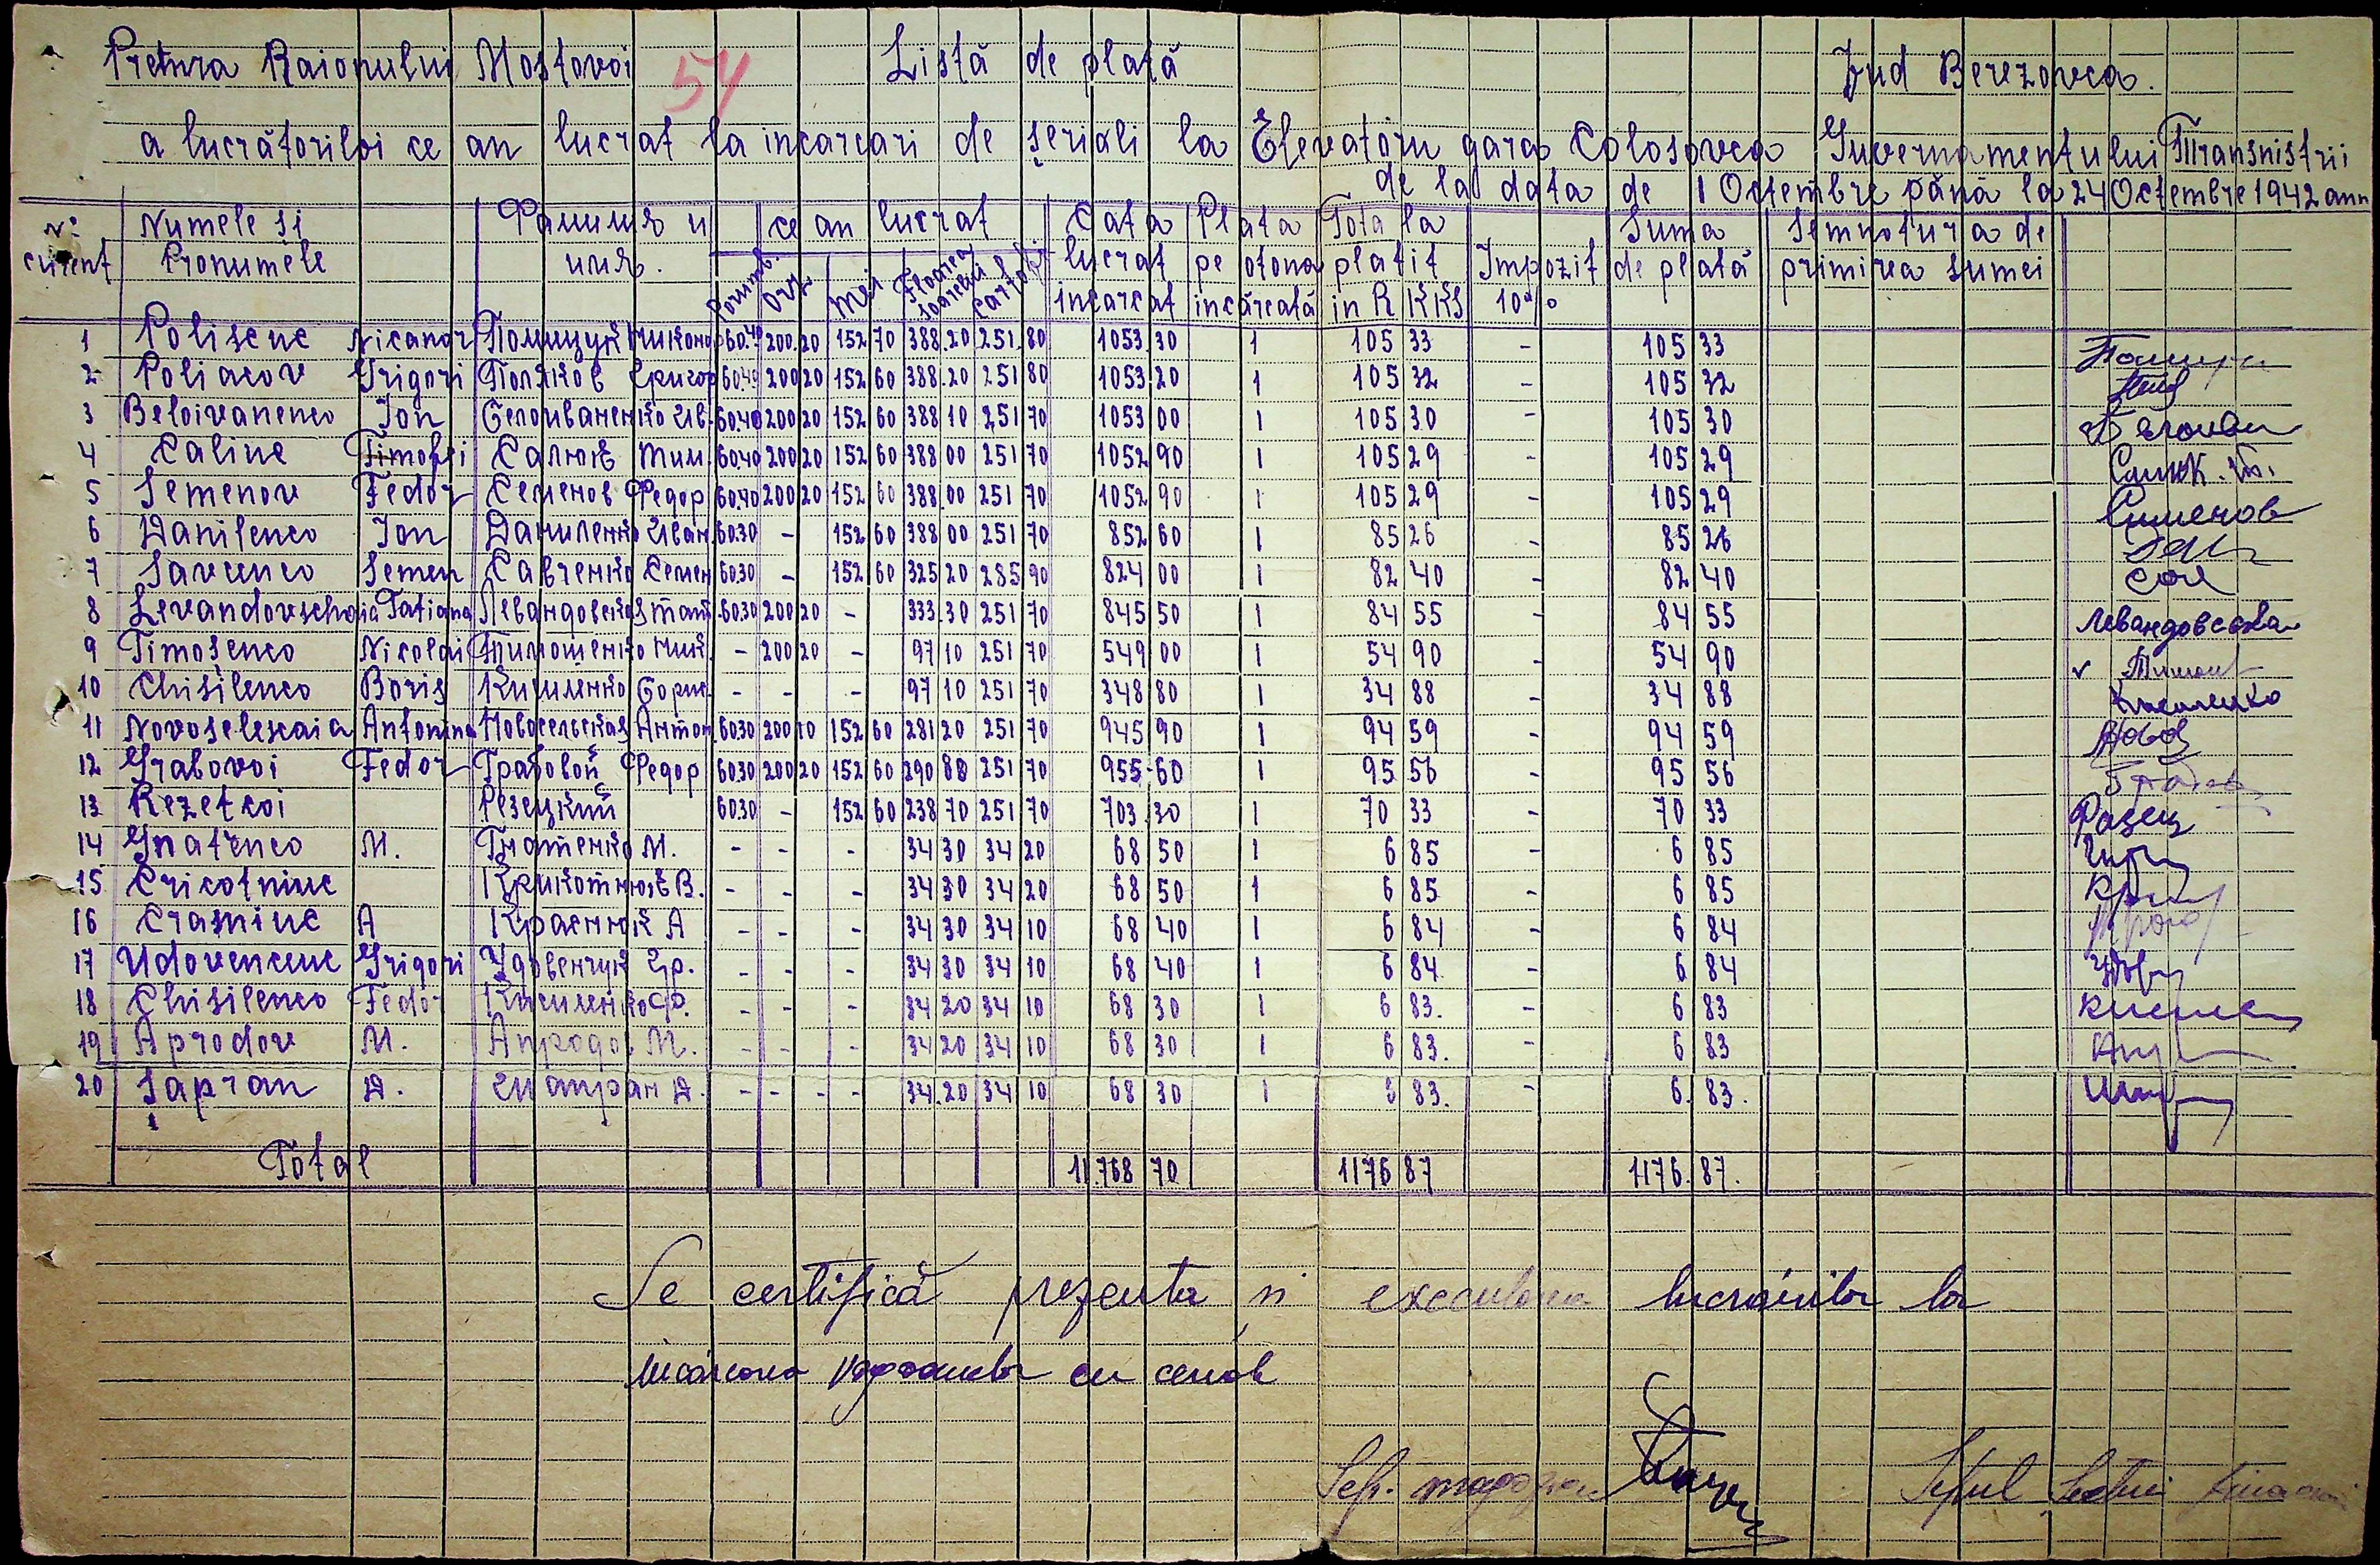 Pretura Raionului Mostovoi 54 Listă de plată Jud Berezovca.
a lucrătorilor ce au lucrat la incarcari de seriali la Elevatoru gara Colosovca Guvernamentului Transnistrii
de la data de 1 Octembre până la 24 Octembre 1942 ann
N° curent Numele și Pronumele Фамилия и имя. ce au lucrat Cata lucrat incarcat Plata pe otona incărcată Tota la platit in R KKS Impozit 10% Suma de plată Semnotura de primirea sumei
Porumb. Orz Mei Floarea soarelui Cartofi
1 Polisciuc Nicanor Полищук Никонор 60.40 200.20 152 70 388.20 251.80 1053.30 1 105 33 - 105 33
2 Poliacov Grigori Поляков Григор 60.40 200 20 152 60 388.20 251 80 1053.20 1 105 32 - 105 32
3 Beloivanenco Ion Белоиваненко Ив. 60.40 200 20 152 60 388 10 251 70 1053 00 1 105 30 - 105 30
4 Caliuc Timofei Салюк Тим. 60.40 200 20 152 60 388 00 251 70 1052 90 1 105 29 - 105 29 Салюк. Т.
5 Semenov Fedor Семенов Федор 60.40 200 20 152 60 388.00 251 70 1052 90 1 105 29 - 105 29 Сименов
6 Danilenco Ion Даниленко Иван 60.30 - 152 60 388 00 251 70 852 60 1 85 26 - 85 26
7 Savcenco Semen Савченко Семен 60.30 - 152 60 325 20 285 90 824 00 1 82 40 - 82 40
8 Levandovschaia Tatiana Левандовская Тать 60.30 200 20 - 333.30 251 70 845 50 1 84 55 - 84 55 Левандовская
9 Timosenco Nicolai Тимошенко Ник. - 200 20 - 97 10 251 70 549 00 1 54 90 - 54 90 ✓ Тимош
10 Chisilenco Boris Кисиленко Борис - - - 97 10 251 70 348 80 1 34 88 - 34 88 Кисиленко
11 Novoselescaia Antonina Новосельская Антон. 60.30 200 10 152 60 281 20 251 70 945 90 1 94 59 - 94 59 Новос
12 Grabovoi Fedor Грабовой Федор 60.30 200 20 152 60 290 80 251 70 955.60 1 95 56 - 95 56
13 Rezetcoi Резецкий 60.30 - 152 60 238 70 251 70 703.30 1 70 33 - 70 33 Разец
14 Gnatenco M. Гнатенко М. - - - 34 30 34 20 68 50 1 6 85 - 6 85
15 Cricotniuc Крикотнюк В. - - - 34 30 34 20 68 50 1 6 85 - 6 85
16 Crasniuc A Краснюк А - - - 34 30 34 10 68 40 1 6 84 - 6 84
17 Udovenciuc Grigori Удовенчук Гр. - - - 34 30 34 10 68 40 1 6 84 - 6 84
18 Chisilenco Fedor Кисиленко Ф. - - - 34 20 34 10 68 30 1 6 83. - 6 83
19 Aprodov M. Апродов М. - - - 34 20 34 10 68 30 1 6 83. - 6 83
20 Șapran D. Шапран Д. - - - - 34.20 34 10 68 30 1 6 83. - 6. 83.
Total 11.768 70 1176 87 1176.87.
Se certifică prezenta și executarea lucrărilor la
incărcarea vagoanelor cu cereale
Șef. magazie Șeful Secției Financiare